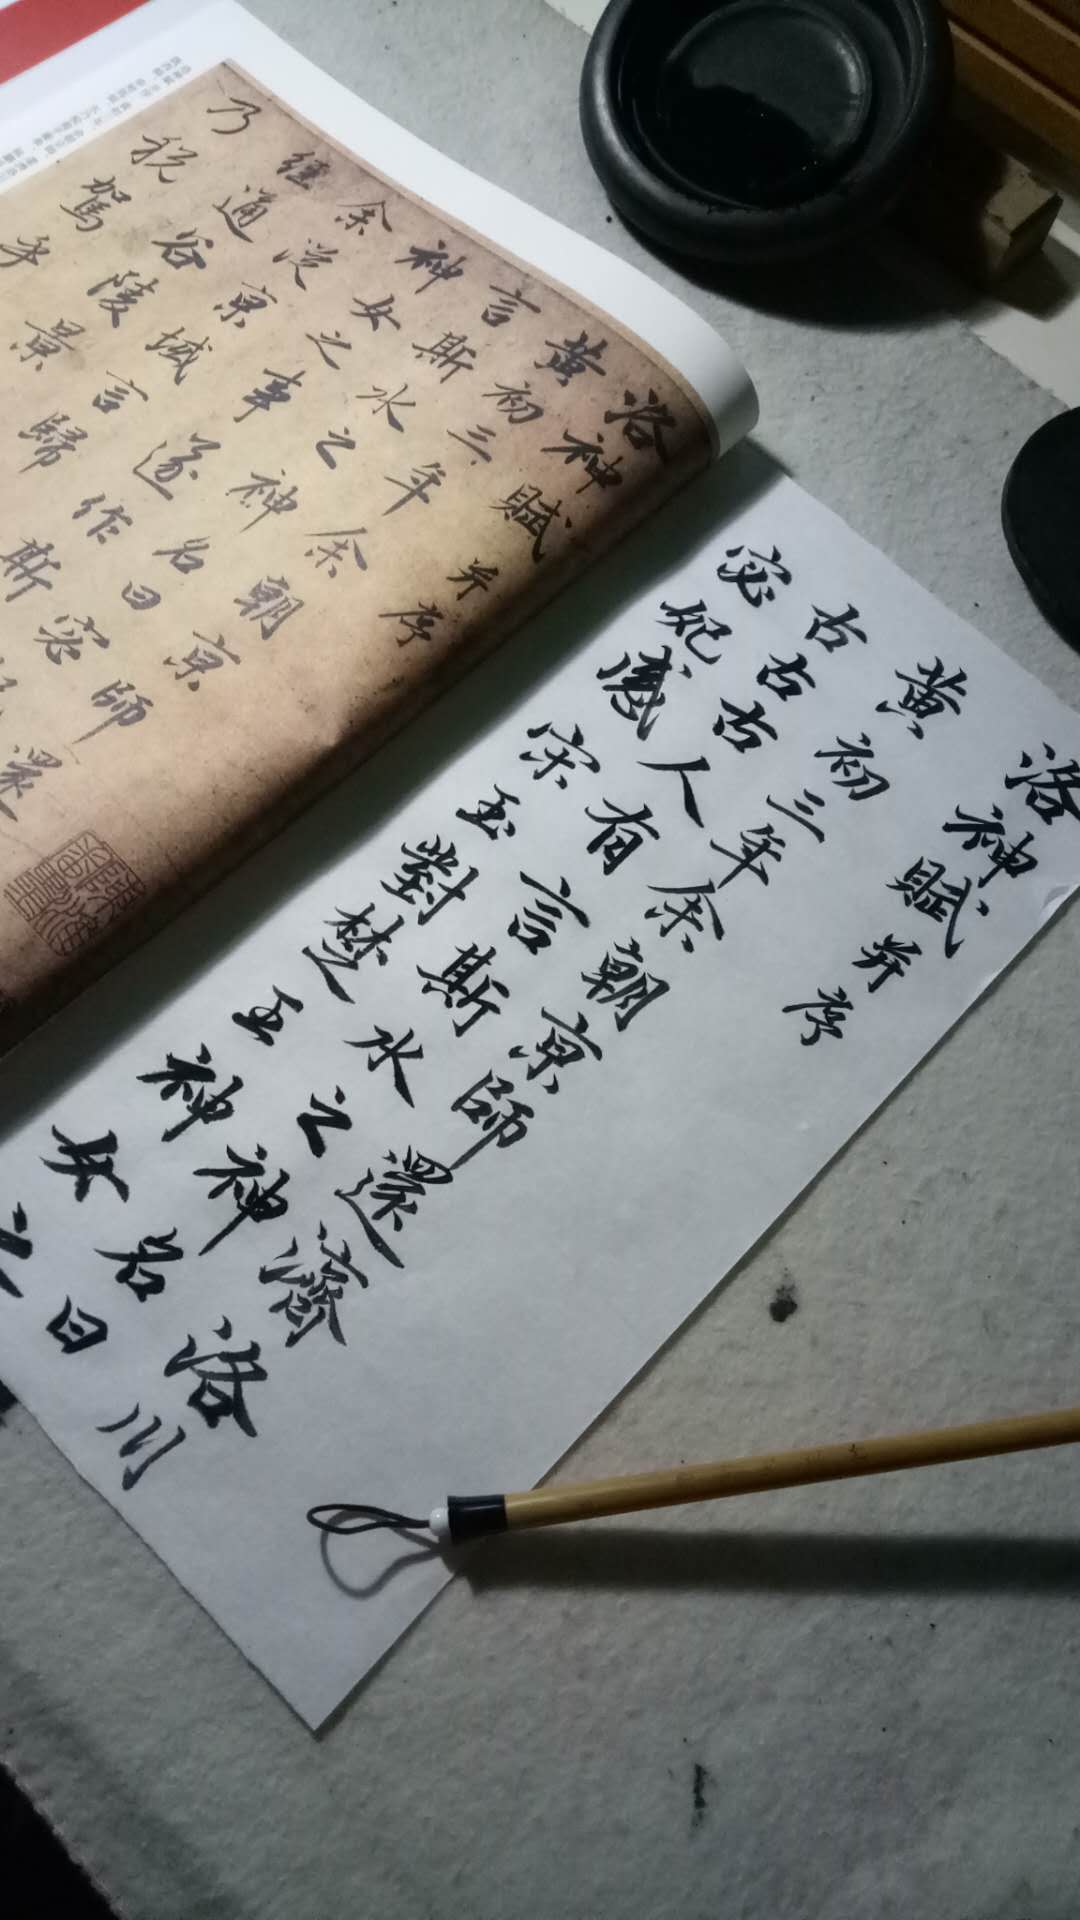 洛神賦并序
黄初三年余朝京師還
言斯水之神名曰宓
神女之事遂作斯
余從京域言歸
經通谷陵景
乃税駕乎
洛神賦并序
黄初三年余朝京師還濟洛川
古古古人有言斯水之神名曰
宓妃感宋玉對楚王神女之